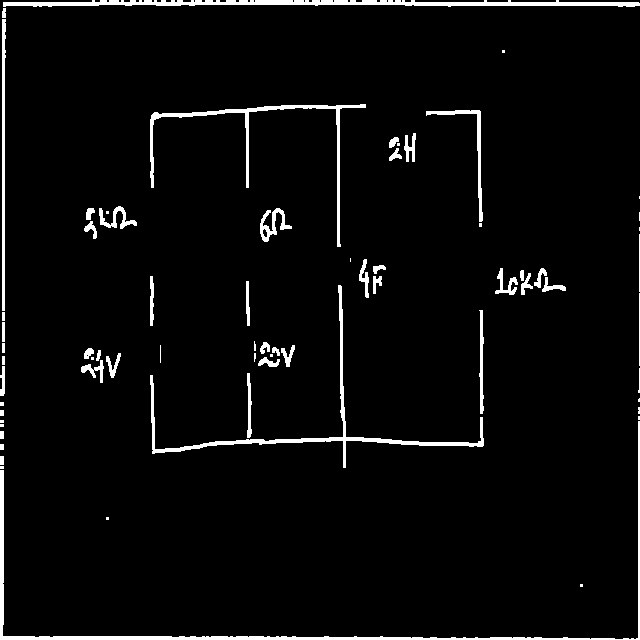 2H
6Ω
4F
10KΩ
24V
20V